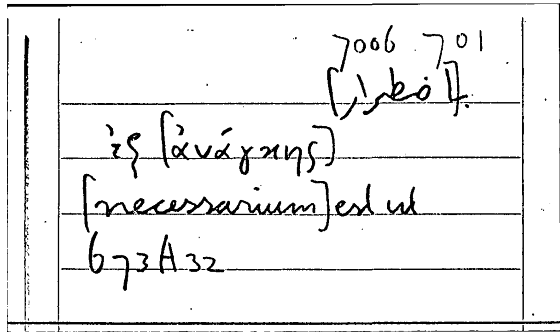 7006 701
ἐξ [ἀνάγκης]
[necessarium] est ut
673A32